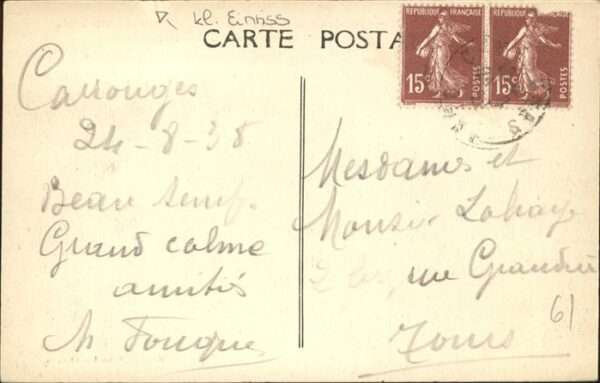 kl. Einriss
CARTE POSTA
REPUBLIQUE FRANÇAISE
15c POSTES
REPUBLIQUE
15c POSTES
Carrouges
24-8-38
Beau temps
Grand calme
amitiés
M Fouque
Mesdames et
Monsieur Lahaye
rue Grandière
Tours
61